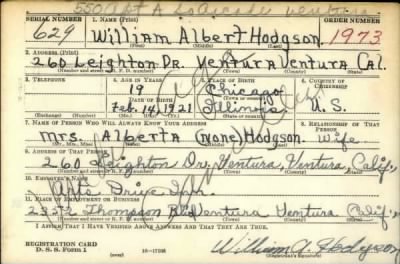 SERIAL NUMBER 1. NAME (Print) ORDER NUMBER
629 William Albert Hodgson 1973
(First) (Middle) (Last)
2. ADDRESS (Print)
260 Leighton Dr. Ventura Ventura Cal.
(Number and street or R. F. D. number) (Town) (County) (State)
3. TELEPHONE 4. AGE IN YEARS 5. PLACE OF BIRTH 6. COUNTRY OF CITIZENSHIP
19 Chicago
DATE OF BIRTH (Town or county)
Feb. 14, 1921 Illinois U. S.
(Mo.) (Day) (Yr.) (State or country)
7. NAME OF PERSON WHO WILL ALWAYS KNOW YOUR ADDRESS 8. RELATIONSHIP OF THAT PERSON
Mrs. Albert (none) Hodgson Wife
(Mr., Mrs., Miss) (First) (Middle) (Last)
9. ADDRESS OF THAT PERSON
260 Leighton Dr, Ventura, Ventura Calif.
(Number and street or R. F. D. number) (Town) (County) (State)
10. EMPLOYER'S NAME
Arts Drive Inn
11. PLACE OF EMPLOYMENT OR BUSINESS
Thompson Ventura Ventura Calif.
(Number and street or R. F. D. number) (Town) (County) (State)
I AFFIRM THAT I HAVE VERIFIED ABOVE ANSWERS AND THAT THEY ARE TRUE.
REGISTRATION CARD
D. S. S. Form 1 (over) 16-17105 William A. Hodgson
(Registrant's signature)